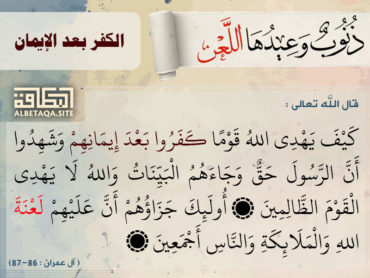 ذُنُوبٌ وَعِيدُهَا اللَّعْن
الكفر بعد الإيمان
البطاقة
ALBETAQA.SITE
قال اللَّه تعالى :
كَيْفَ يَهْدِى اللهُ قَوْمًا كَفَرُوا بَعْدَ إِيمَانِهِمْ وَشَهِدُوا
أَنَّ الرَّسُولَ حَقٌّ وَجَاءَهُمُ الْبَيِّنَاتُ وَاللهُ لَا يَهْدِى
الْقَوْمَ الظَّالِمِينَ ۝ أُولَئِكَ جَزَاؤُهُمْ أَنَّ عَلَيْهِمْ لَعْنَةَ
اللهِ وَالْمَلَائِكَةِ وَالنَّاسِ أَجْمَعِينَ ۝
( آل عمران : 86-87 )